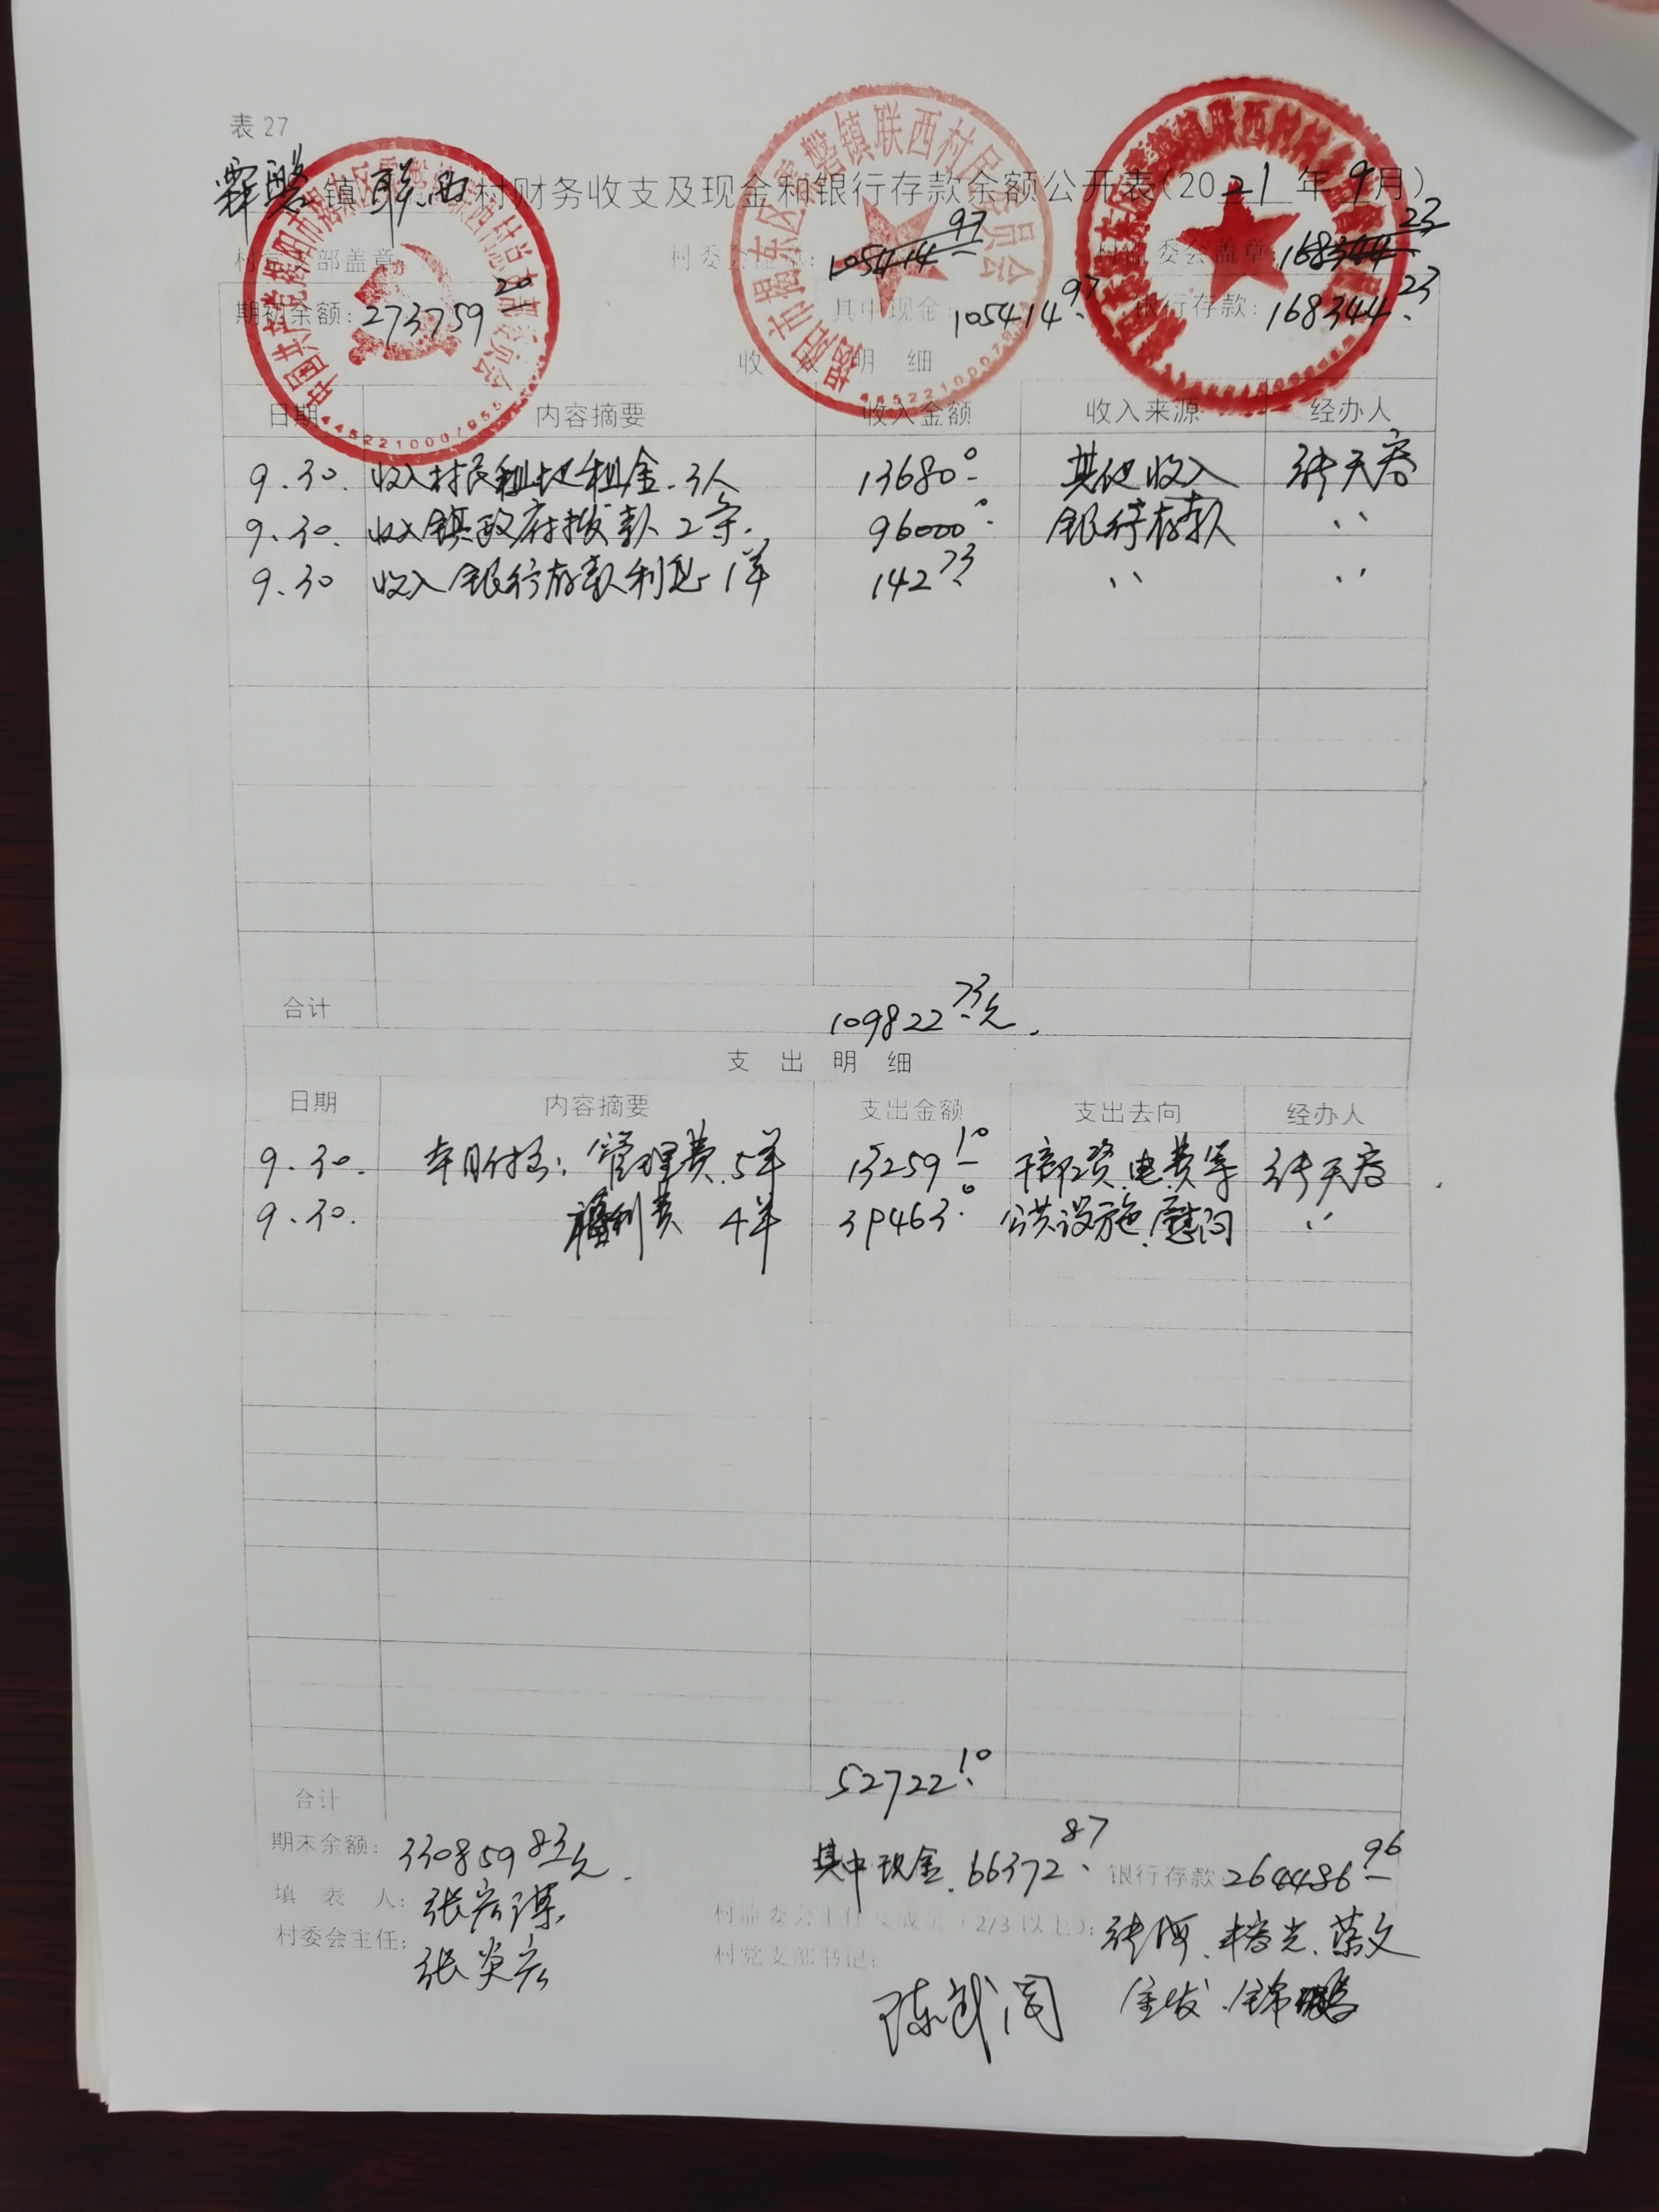 表27
霖磐镇联西村财务收支及现金和银行存款余额公开表(2021年9月)
村党支部盖章 村委会盖章: 105414.97 村监委会盖章: 168344.23
期初余额: 273759.20 其中现金: 105414.97 银行存款: 168344.23
收入明细
日期 内容摘要 收入金额 收入来源 经办人
9.30. 收入村民租地租金.3人 13680.0 其他收入 张天
9.30. 收入镇政府拨款2条. 96000.0 银行存款 〃
9.30 收入银行存款利息1单 142.73 〃 〃
合计 109822.73元.
支出明细
日期 内容摘要 支出金额 支出去向 经办人
9.30. 本月付出: 管理费.5单 13259.10 干部工资.电费等 张天
9.30. 福利费 4单 39463.0 公共设施.慰问 〃
合计 52722.10
期末余额: 330859.83元. 其中现金.66372.87 银行存款: 264486.96
填表人: 张宏
村监委会主任及成员(2/3以上): 张海
村委会主任: 张奕宏
村党支部书记: 陈武
中国共产党揭阳市揭东区霖磐镇联西村总支部委员会
揭阳市揭东区霖磐镇联西村民委员会